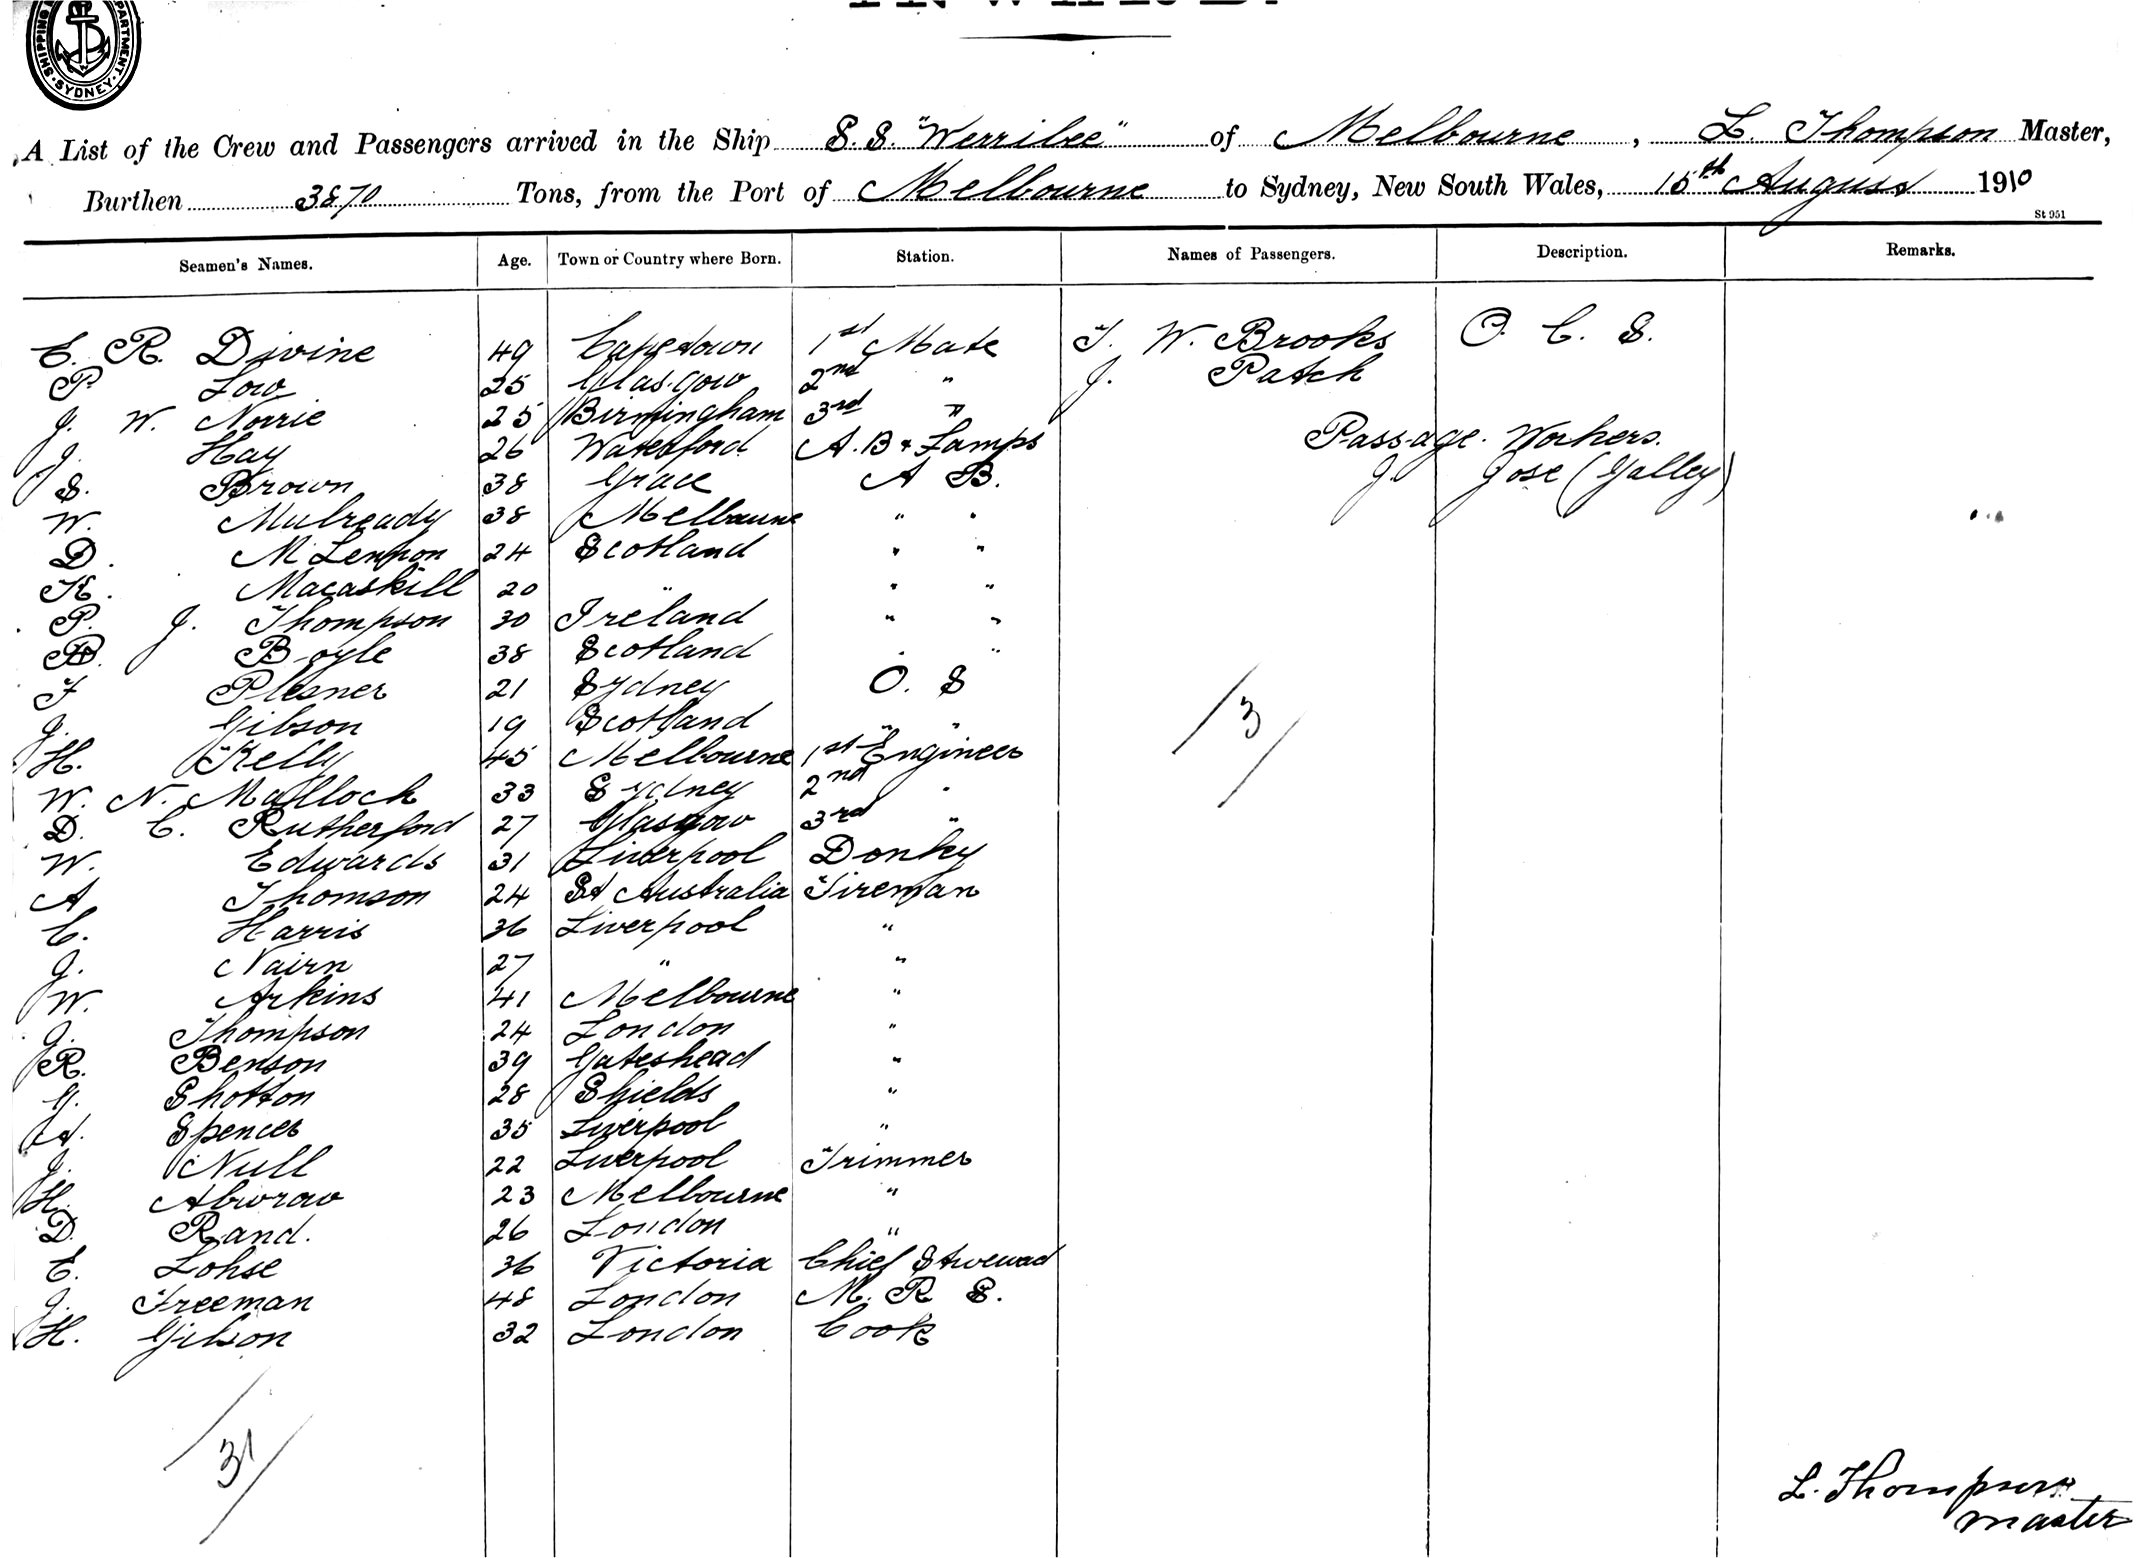 SYDNEY
A List of the Crew and Passengers arrived in the Ship S.S. "Werribee" of Melbourne, L. Thompson Master,
Burthen 3870 Tons, from the Port of Melbourne to Sydney, New South Wales, 15th August 1910
St 951
Seamen's Names. Age. Town or Country where Born. Station. Names of Passengers. Description. Remarks.
E. R. Divine 49 Capetown 1st Mate T. W. Brooks O. C. S.
P. Low 25 Glasgow 2nd " J. Patch
J. W. Norrie 25 Birmingham 3rd "
J. Hay 26 Waterford A.B & Lamps Passage Workers.
S. Brown 38 Grace A B. J. Jose (Galley)
W. Mulready 38 Melbourne " "
D. McLennon 24 Scotland " "
K. Macaskill 20 " " "
P. J. Thompson 30 Ireland " "
B. Boyle 38 Scotland " "
F Plesner 21 Sydney O. S
J. Gibson 19 Scotland " "
H. Kelly 45 Melbourne 1st Engineer
W. N. Malloch 33 Sydney 2nd "
D. C. Rutherford 27 Glasgow 3rd "
W. Edwards 31 Liverpool Donkey
A Thomson 24 St Australia Fireman
C. Harris 36 Liverpool "
J. Nairn 27 " "
W. Arkins 41 Melbourne "
J. Thompson 24 London "
R. Benson 39 Gateshead "
Shotton 28 Shields "
A. Spencer 35 Liverpool "
J. Null 22 Liverpool Trimmer
H. 23 Melbourne "
D. Rand. 26 London "
E. Lohse 36 Victoria Chief Steward
J. Freeman 48 London M. R S.
H. Gibson 32 London Cook
/3/
/31/
L. Thompson
Master